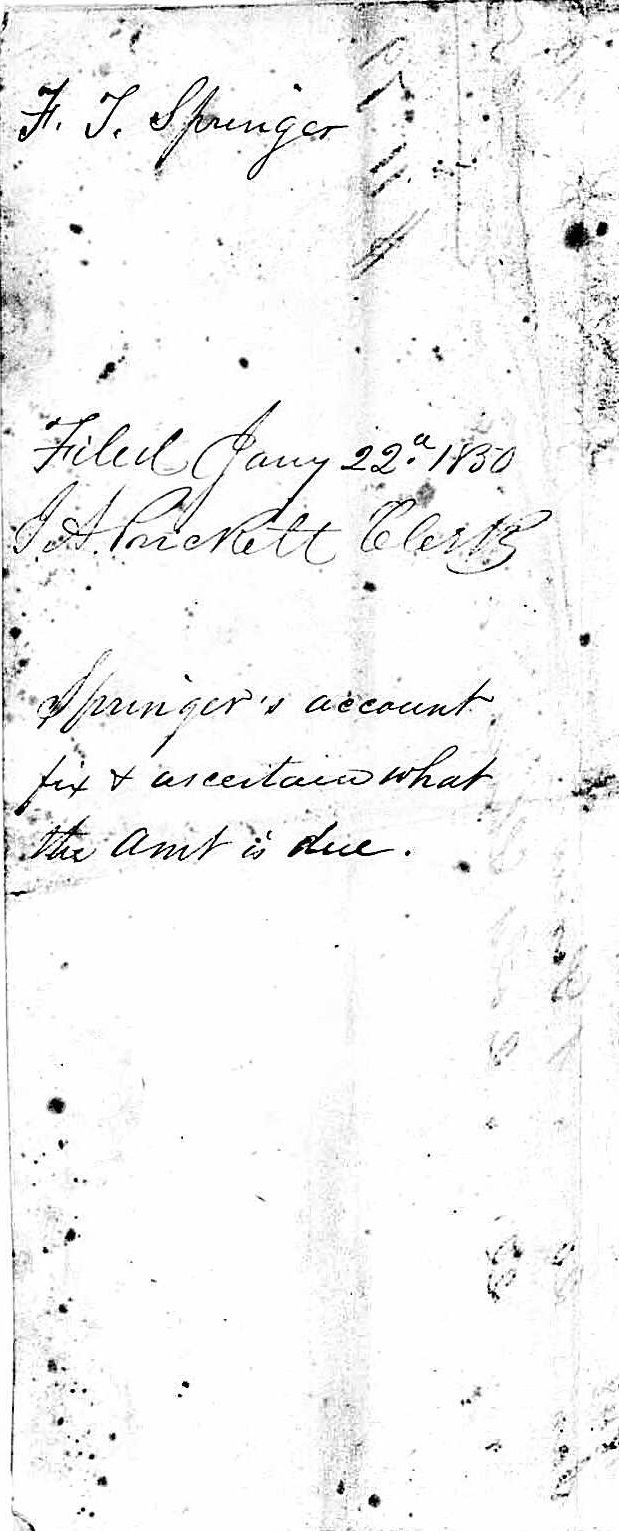 F. T. Springer
Filed Jany 22d. 1850
J. A. Prickett Clerk
Springer's account
fix & ascertain what
the Amt is due.